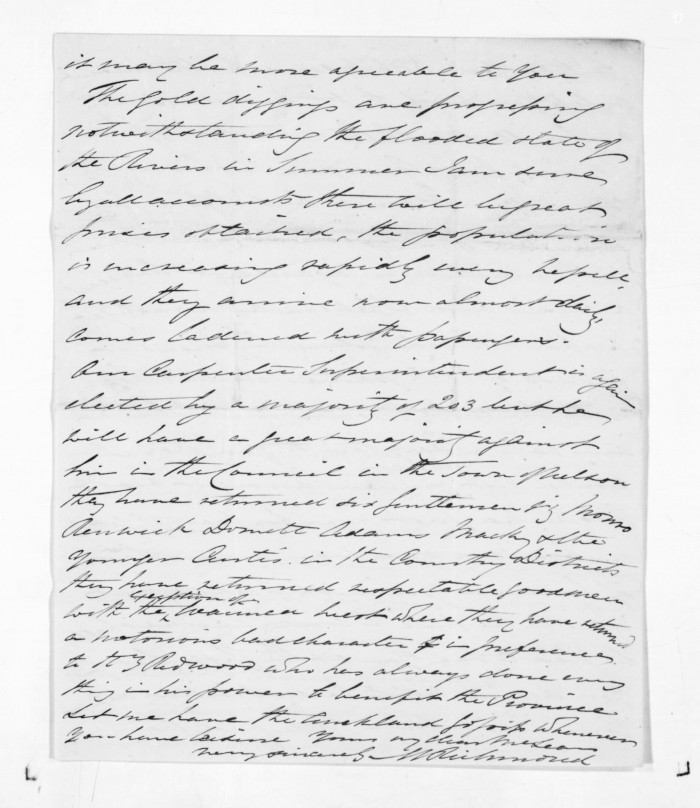 it may be more agreeable to You
The Gold diggings are progressing
notwithstanding the flooded state of
the Rivers in Summer I am sure
by all accounts there will be great
prizes obtained, the population
is increasing rapidly every vessell,
and they arrive now almost daily
comes ladened with passengers.
Our Carpenter Superintendent is again
elected by a majority of 203 but he
will have a great majority against
him in the Council in the Town of Nelson
they have returned six Gentlemen viz Monro
Renwick Domett Adams Mackey & the
younger Curtis. in the Country Districts
they have returned respectable good men
with the exception of Waimea West where they have returned
a notorious bad character & in preference
to H Redwood who has always done every
thing in his power to benefit the Province
Let me have the Auckland gossip whenever
You have leisure Yours my dear McLean
very sincerely M Richmond